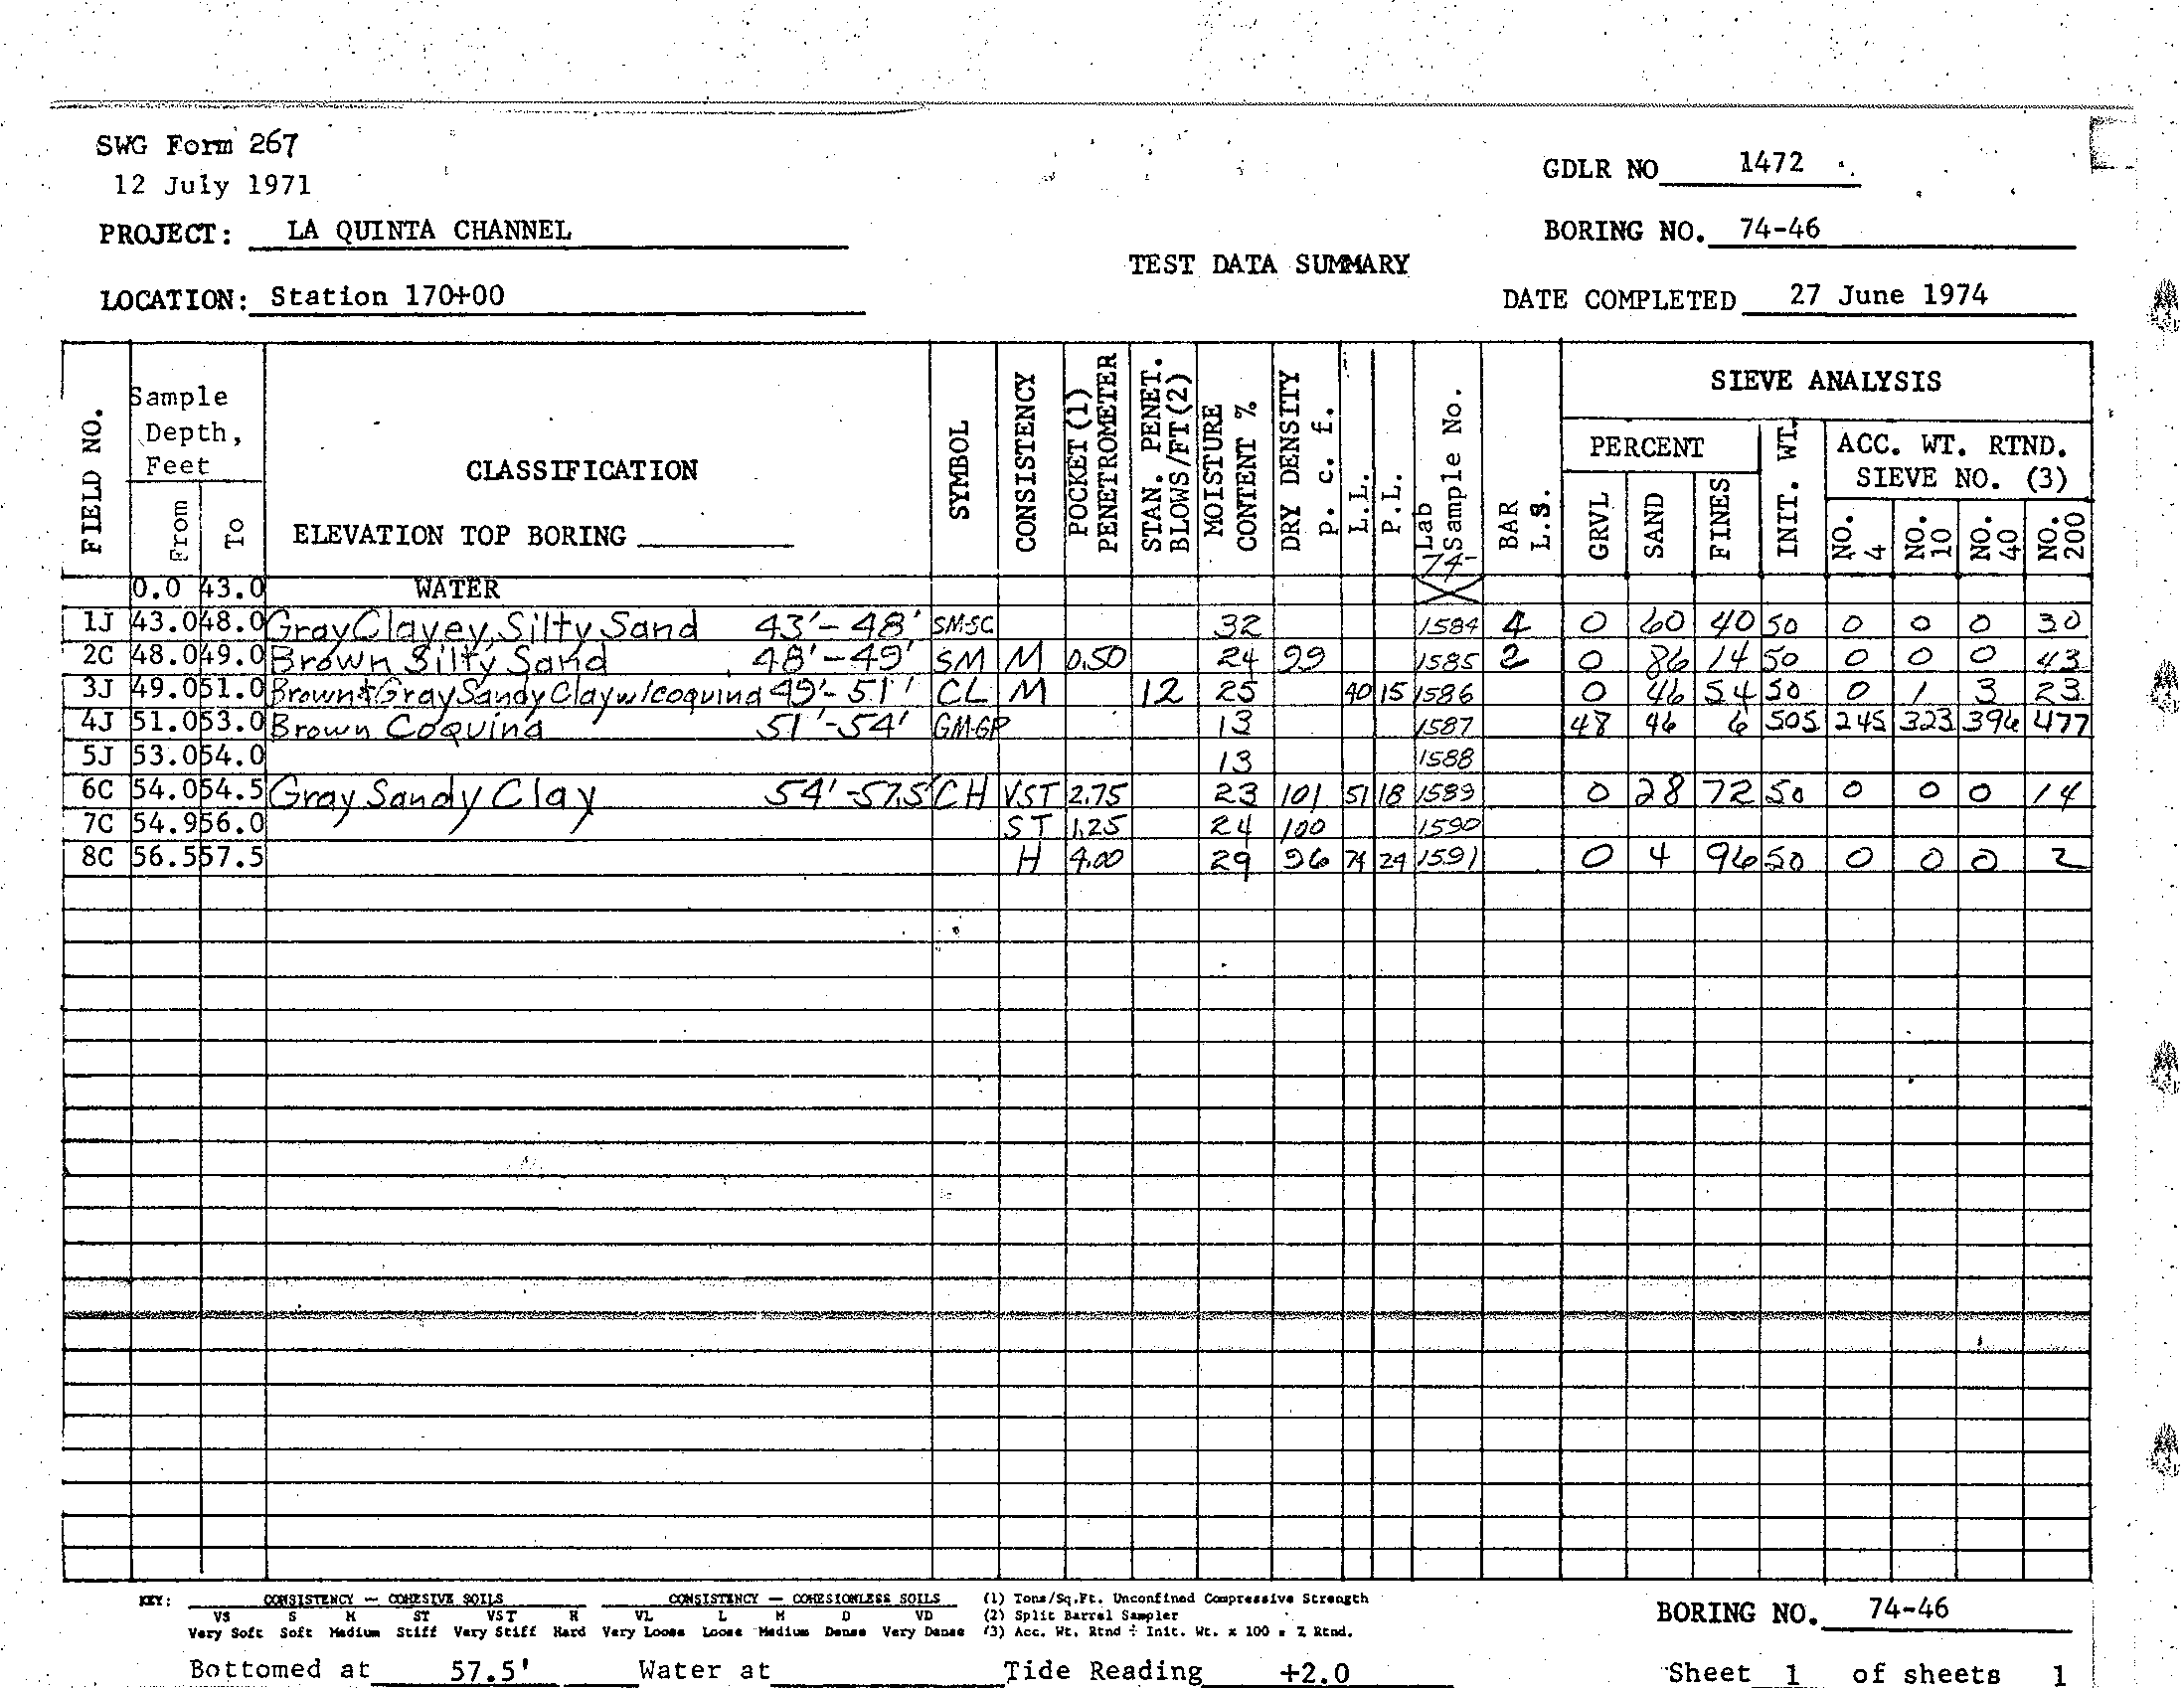 SWG Form 267
12 July 1971
GDLR NO 1472
PROJECT: LA QUINTA CHANNEL
BORING NO. 74-46
TEST DATA SUMMARY
LOCATION: Station 170+00
DATE COMPLETED 27 June 1974
FIELD NO.
Sample Depth, Feet
From
To
CLASSIFICATION
ELEVATION TOP BORING
SYMBOL
CONSISTENCY
POCKET (1) PENETROMETER
STAN. PENET. BLOWS/FT(2)
MOISTURE CONTENT %
DRY DENSITY p. c. f.
L.L.
P.L.
Lab Sample No.
74-
BAR L.S.
SIEVE ANALYSIS
PERCENT
GRVL
SAND
FINES
INIT. WT.
ACC. WT. RTND.
SIEVE NO. (3)
NO. 4
NO. 10
NO. 40
NO. 200
0.0 43.0 WATER
1J 43.0 48.0 Gray Clayey, Silty Sand 43'-48' SM-SC 32 1584 4 0 60 40 50 0 0 0 30
2C 48.0 49.0 Brown Silty Sand 48'-49' SM M 0.50 24 99 1585 2 0 86 14 50 0 0 0 43
3J 49.0 51.0 Brown & Gray Sandy Clay w/coquina 49'-51' CL M 12 25 40 15 1586 0 46 54 50 0 1 3 23
4J 51.0 53.0 Brown Coquina 51'-54' GM-GP 13 1587 48 46 6 505 245 323 396 477
5J 53.0 54.0 13 1588
6C 54.0 54.5 Gray Sandy Clay 54'-57.5' CH VST 2.75 23 101 51 18 1589 0 28 72 50 0 0 0 14
7C 54.9 56.0 ST 1.25 24 100 1590
8C 56.5 57.5 H 4.00 29 96 74 24 1591 0 4 96 50 0 0 0 2
KEY: CONSISTENCY - COHESIVE SOILS CONSISTENCY - COHESIONLESS SOILS (1) Tons/Sq.Ft. Unconfined Compressive Strength
VS S M ST VST H VL L M D VD (2) Split Barrel Sampler
Very Soft Soft Medium Stiff Very Stiff Hard Very Loose Loose Medium Dense Very Dense (3) Acc. Wt. Rtnd ÷ Init. Wt. x 100 = % Rtnd.
BORING NO. 74-46
Bottomed at 57.5' Water at Tide Reading +2.0 Sheet 1 of sheets 1